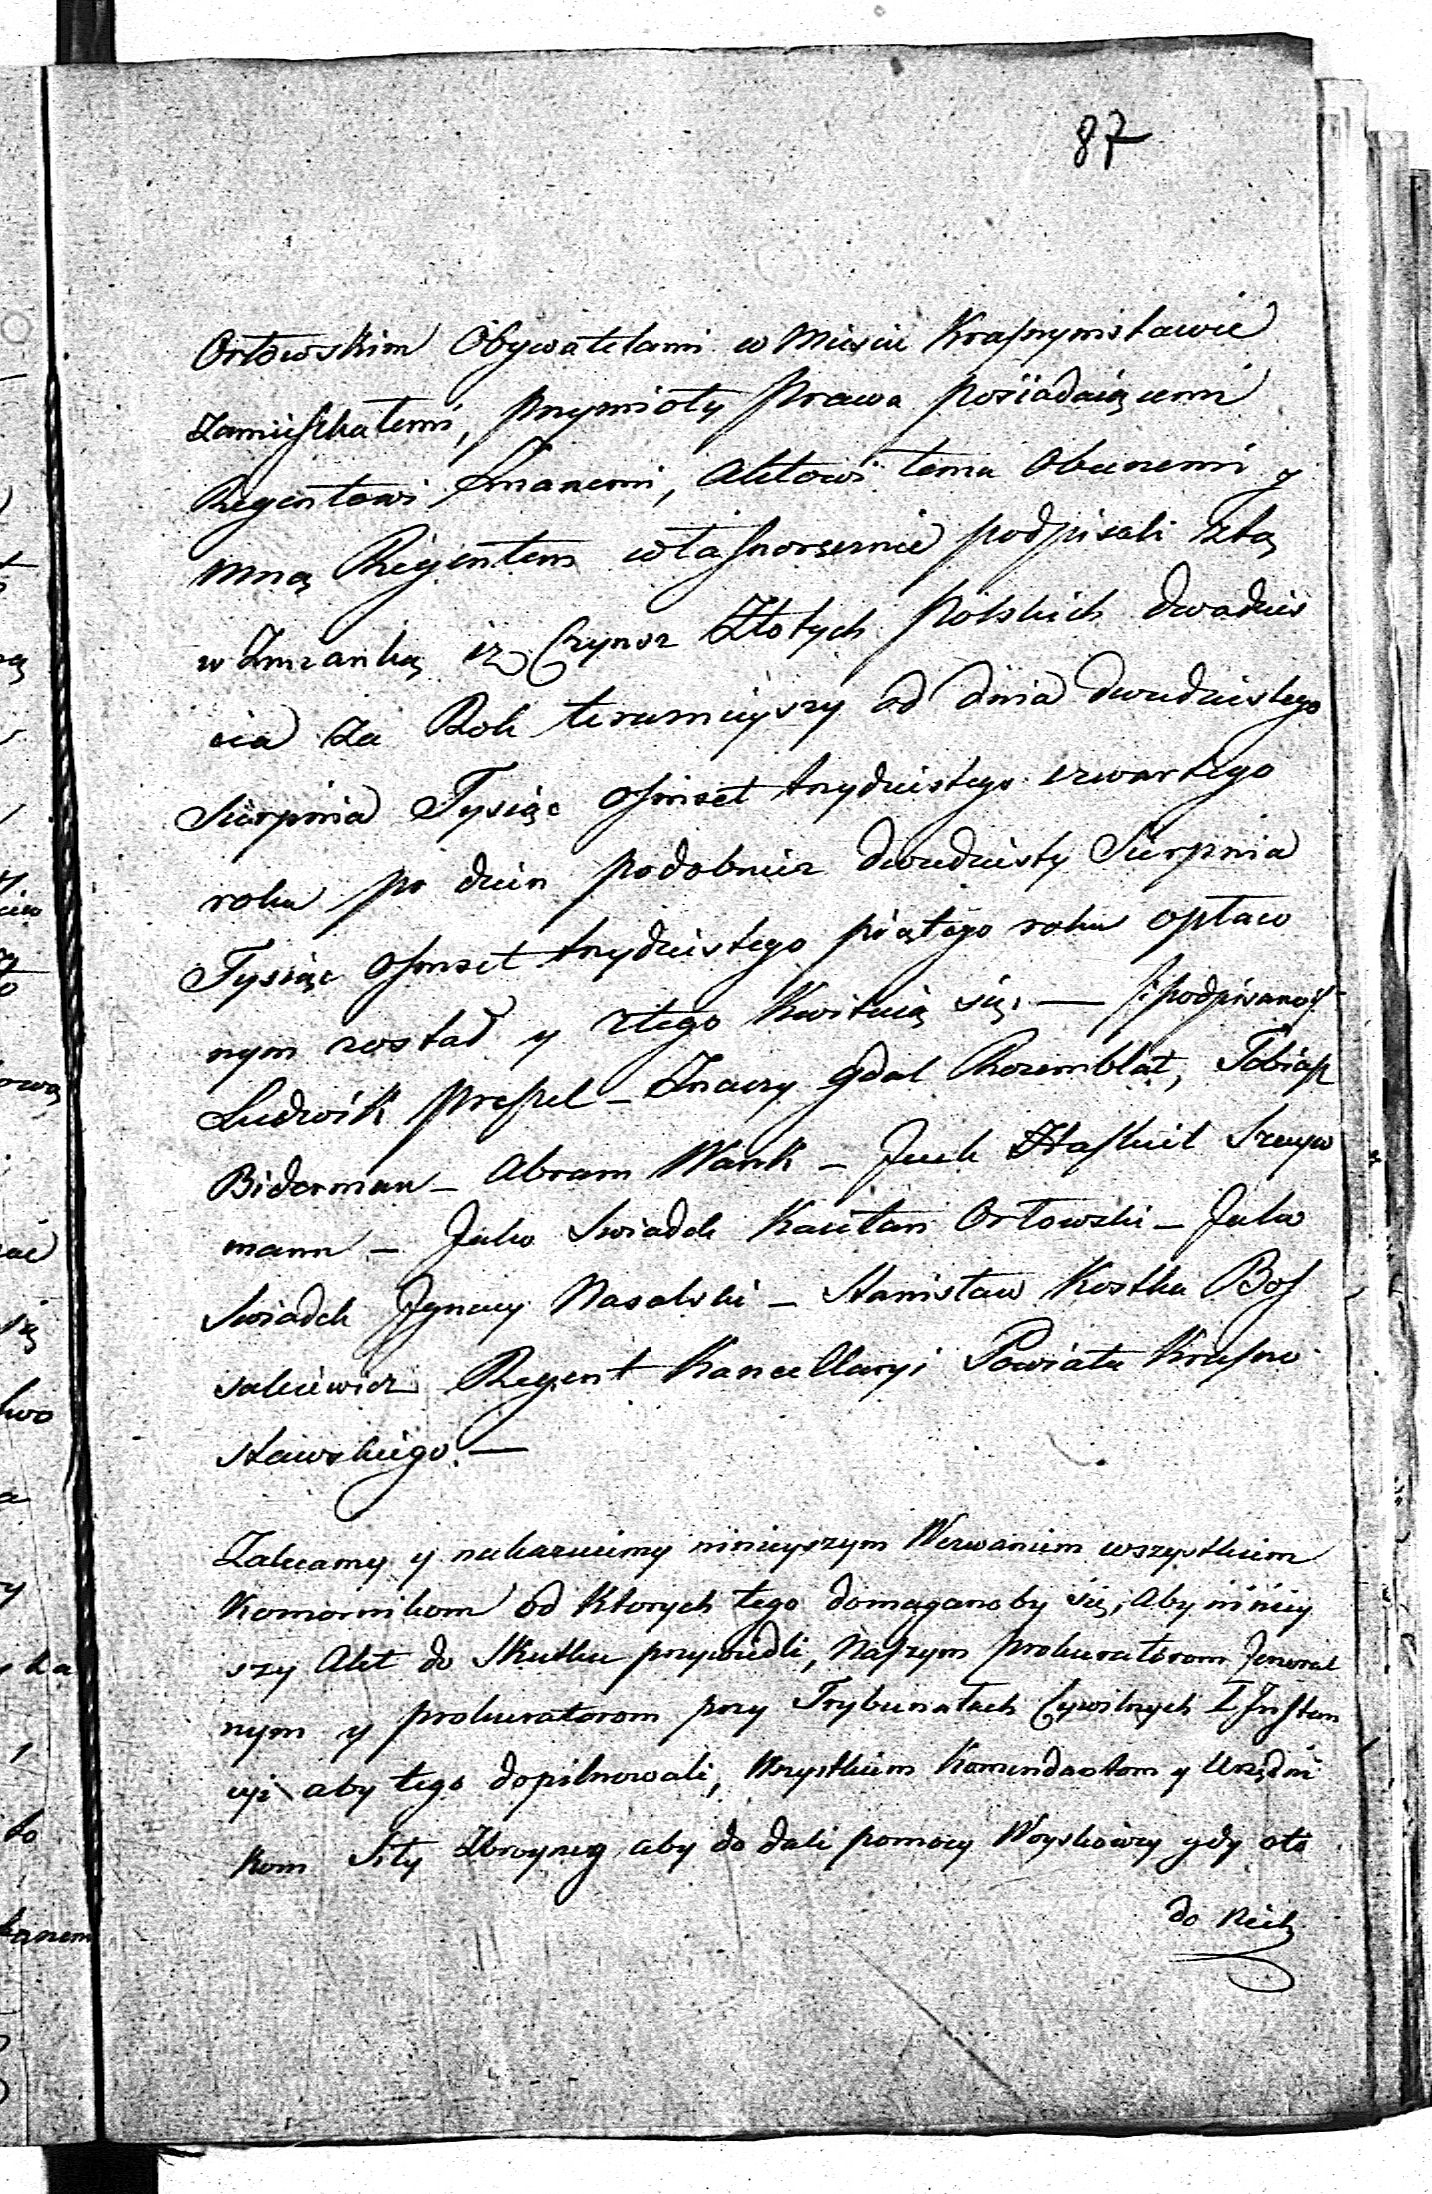 87
Orłowskim Obywatelami w Mieście Krasnymstawie
zamieszkałemi, przymioty Prawa posiadaiącemi
Regentowi znanemi, Aktowi temu Obecnemi y
mną Regentem własnoręcznie podpisali z tą
wzmianką iż Czynsz Złotych Polskich dwadzieś
cia za Rok teraznieyszy od dnia dwudziestego
Sierpnia Tysiąc Osmset trzydziestego czwartego
roku po dzien podobnież dwudziesty Sierpnia
Tysiąc Osmset trzydziestego piątego roku opłaco
nym został y z tego kwituią się. — /: podpisano :/
Ludwik Preszel – Inaczy Gdal Rozemblat, Tobiasz
Biderman – Abram Wank – Jcek Haskiel Szeyw
mann – Jako Swiadek Kaietan Orłowski – Jako
Swiadek Jgnacy Nasalski – Stanisław Kostka Bos
sakiewicz Regent Kancellaryi Powiatu Krasno
stawskiego. —
Zalecamy y nakazuiemy ninieyszym Wezwaniem wszystkim
Komornikom od Ktorych tego domaganoby się, Aby niniey
szy Akt do Skutku przywiedli, Naszym Prokuratorom Jeneral
nym y Prokuratorom przy Trybunałach Cywilnych I Instan
cyi aby tego dopilnowali, Wszystkim Komendantom y Urzędni
kom Siły Zbroyney aby dodali pomocy Woyskowey gdy oto
do Nich